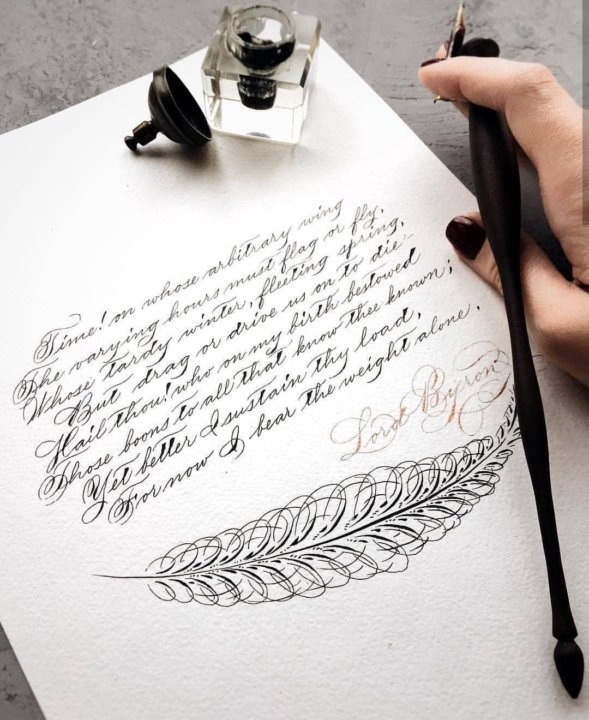 Time! on whose arbitrary wing
The varying hours must flag or fly,
Whose tardy winter, fleeting spring,
But drag or drive us on to die –
Hail thou! who on my birth bestowed
Those boons to all that know thee known;
Yet better I sustain thy load,
For now I bear the weight alone.
Lord Byron